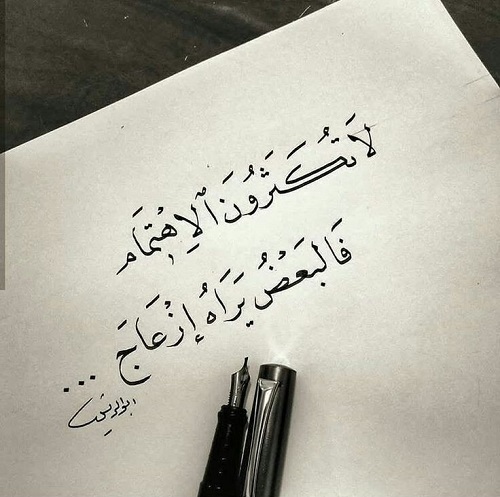 لَا تُكَثِرُونَ ٱلِاهْتِمَام
فَالبَعْضُ يَرَاهُ إِزْعَاجَ ...